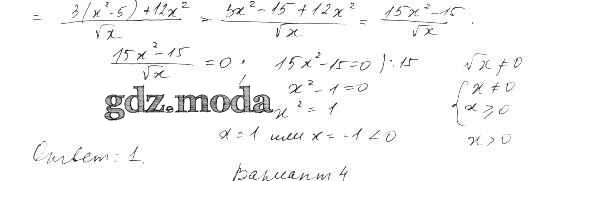 = 3(x²-5)+12x² / √x = 3x²-15+12x² / √x = 15x²-15 / √x .
15x²-15 / √x = 0; 15x²-15=0 ) :15 √x ≠ 0
x²-1=0 { x ≠ 0
gdz.moda x²=1 x ≥ 0
x=1 или x=-1 < 0 x > 0
Ответ: 1.
Вариант 4